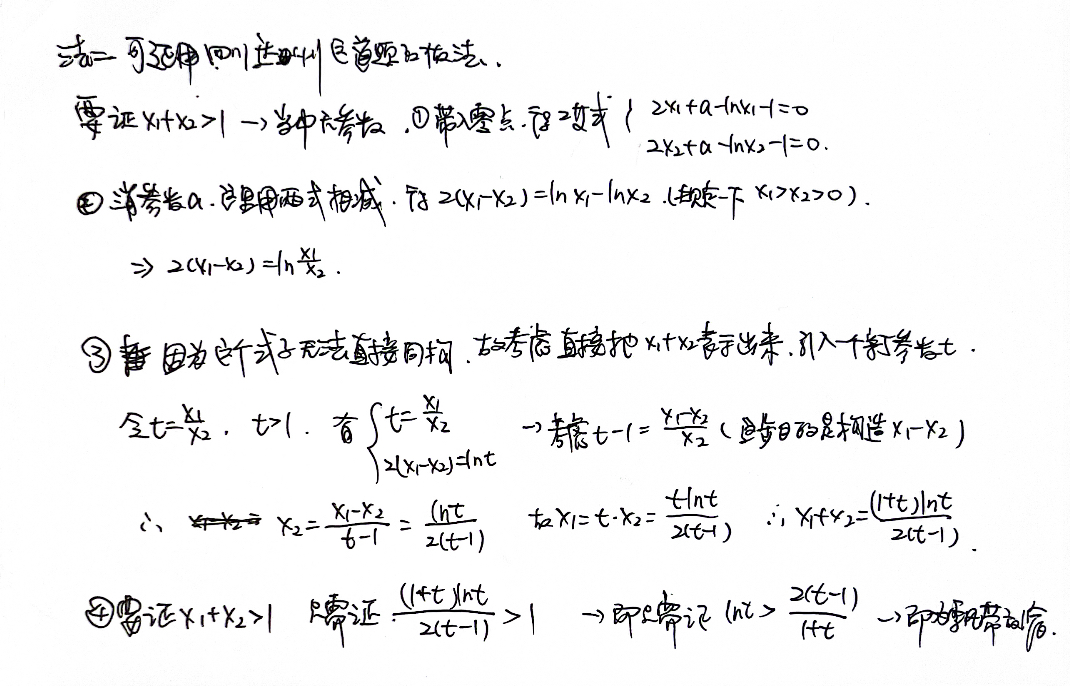 法二 可延用 这道题的做法.
要证 x₁+x₂>1 → 当中无参数. ①带入零点. 得 2变式 { 2x₁+a-lnx₁-1=0
2x₂+a-lnx₂-1=0.
② 消参数a. 只用两式相减. 得 2(x₁-x₂)=lnx₁-lnx₂ (一下 x₁>x₂>0).
⇒ 2(x₁-x₂)=ln x₁/x₂.
③ 因为这个式子无法直接同构, 故考虑直接把x₁+x₂表示出来, 引入一个新参数t.
令t=x₁/x₂. t>1. 有 { t=x₁/x₂ → 考虑 t-1=(x₁-x₂)/x₂ (这步目的是构造 x₁-x₂)
2(x₁-x₂)=lnt
∴ x₂=(x₁-x₂)/(t-1)=lnt/2(t-1) 故x₁=t·x₂=tlnt/2(t-1) ∴ x₁+x₂=(1+t)lnt/2(t-1).
④要证x₁+x₂>1 只需证 (1+t)lnt/2(t-1)>1 → 即只需证 lnt>2(t-1)/(1+t) →